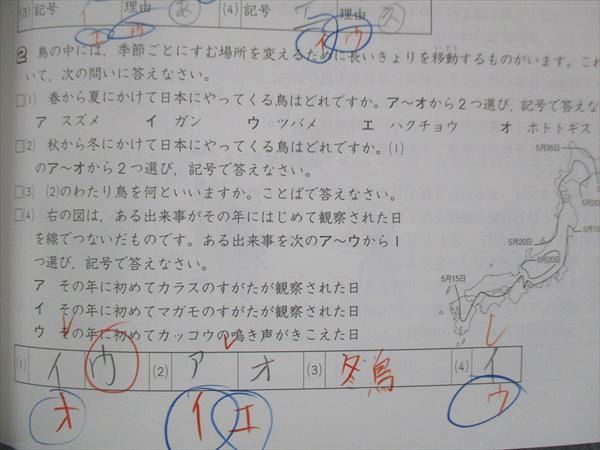 (3) 記号 イ 理由 あ (4) 記号 イ 理由
エ ウ イ ウ
2 鳥の中には，季節ごとにすむ場所を変えるために長いきょりを移動するものがいます。これ
いて，次の問いに答えなさい。
□(1) 春から夏にかけて日本にやってくる鳥はどれですか。ア〜オから2つ選び，記号で答えな
ア スズメ イ ガン ウ ツバメ エ ハクチョウ オ ホトトギス
□(2) 秋から冬にかけて日本にやってくる鳥はどれですか。(1)
のア〜オから2つ選び，記号で答えなさい。
□(3) (2)のわたり鳥を何といいますか。ことばで答えなさい。
□(4) 右の図は，ある出来事がその年にはじめて観察された日
を線でつないだものです。ある出来事を次のア〜ウから1
つ選び，記号で答えなさい。
ア その年に初めてカラスのすがたが観察された日
イ その年に初めてマガモのすがたが観察された日
ウ その年に初めてカッコウの鳴き声がきこえた日
5月26日
5月15
5月20日
5月20日
5月15日
(1) イ ウ (2) ア オ (3) 冬鳥 (4) イ
オ イ エ ウ